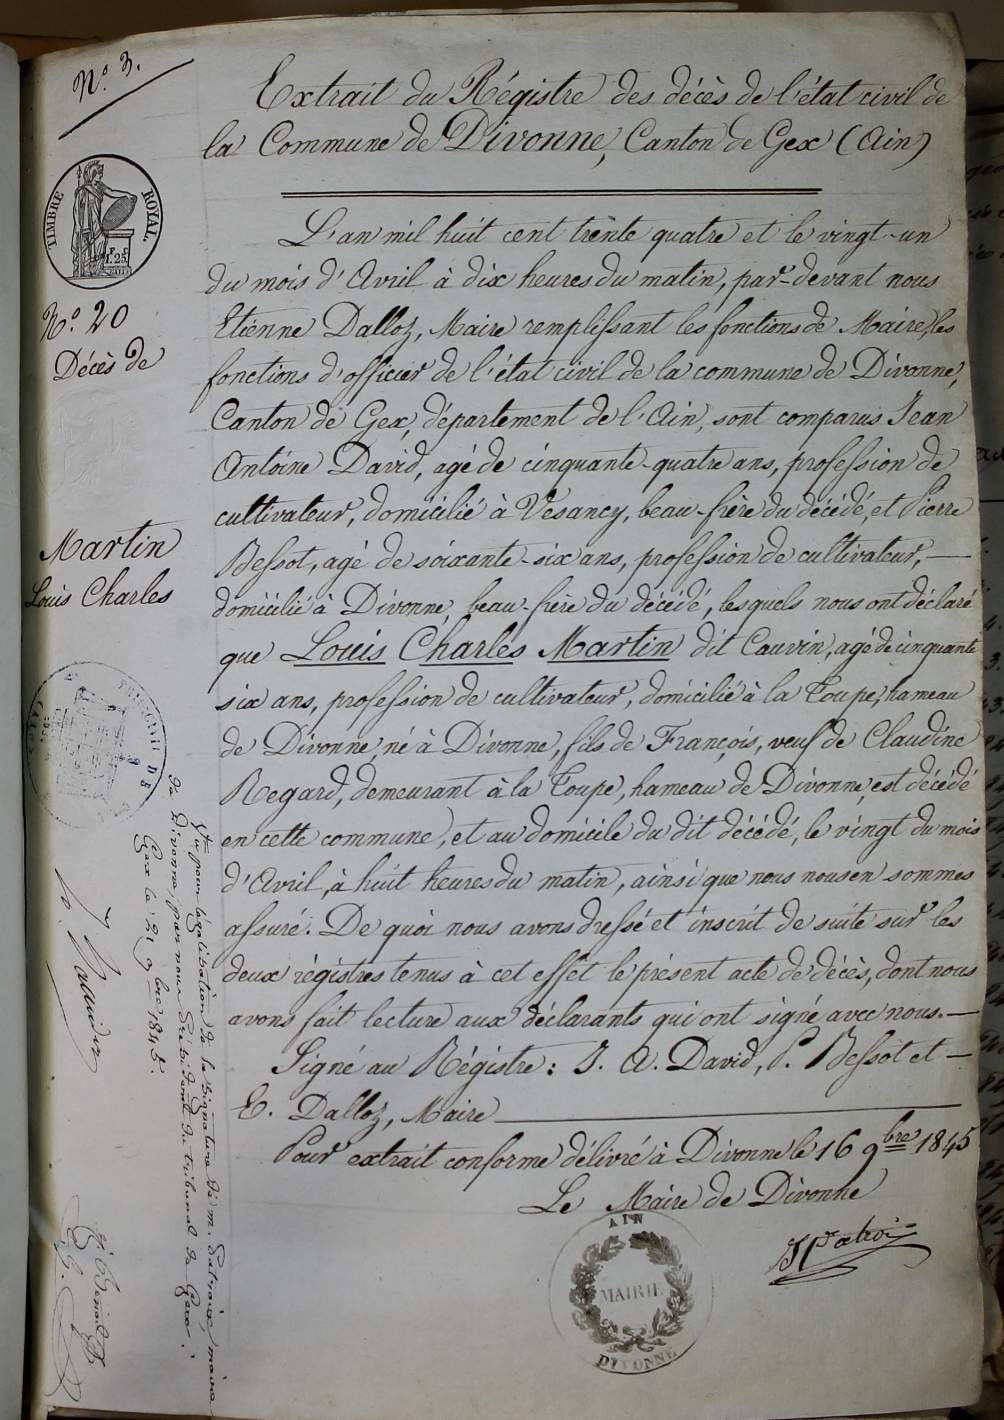 N.º 3.
Extrait du Régistre des décès de l'état civil de
la Commune de Divonne, Canton de Gex (Ain)
TIMBRE ROYAL.
1F 25
N.º 20
Décès de
Martin
Louis Charles
L'an mil huit cent trènte quatre et le vingt-un
du mois d'Avril à dix heures du matin, par-devant nous
Etienne Dalloz, Maire remplissant les fonctions de Maire, les
fonctions d'officier de l'état civil de la commune de Divonne,
Canton de Gex, département de l'Ain, sont comparus Jean
Antoine David, agé de cinquante-quatre ans, profession de
cultivateur, domicilié à Vesancy, beau-frère du décédé, et Pierre
Bessot, agé de soixante-six ans, profession de cultivateur,—
domicilié à Divonne, beau-frère du décédé, lesquels nous ont déclaré
que Louis Charles Martin dit Cauvin, agé de cinquante
six ans, profession de cultivateur, domicilié à la Coupe, hameau
de Divonne, né à Divonne, fils de François, veuf de Claudine
Regard, demeurant à la Coupe, hameau de Divonne, est décédé
en cette commune, et au domicile du dit décédé, le vingt du mois
d'Avril, à huit heures du matin, ainsi que nous nous en sommes
assuré. De quoi nous avons dressé et inscrit de suite sur les
deux régistres tenus à cet effet le présent acte de décès, dont nous
avons fait lecture aux déclarants qui ont signé avec nous.—
Signé au Régistre: J. A. David, P. Bessot et —
E. Dalloz, Maire
Pour extrait conforme délivré à Divonne le 16 9bre 1845
Le Maire de Divonne
AIN
MAIRIE
DIVONNE
Vu pour légalisation de la signature de M. maire
de Divonne, par nous Président du tribunal de Gex.
Gex le 21 9bre 1845.